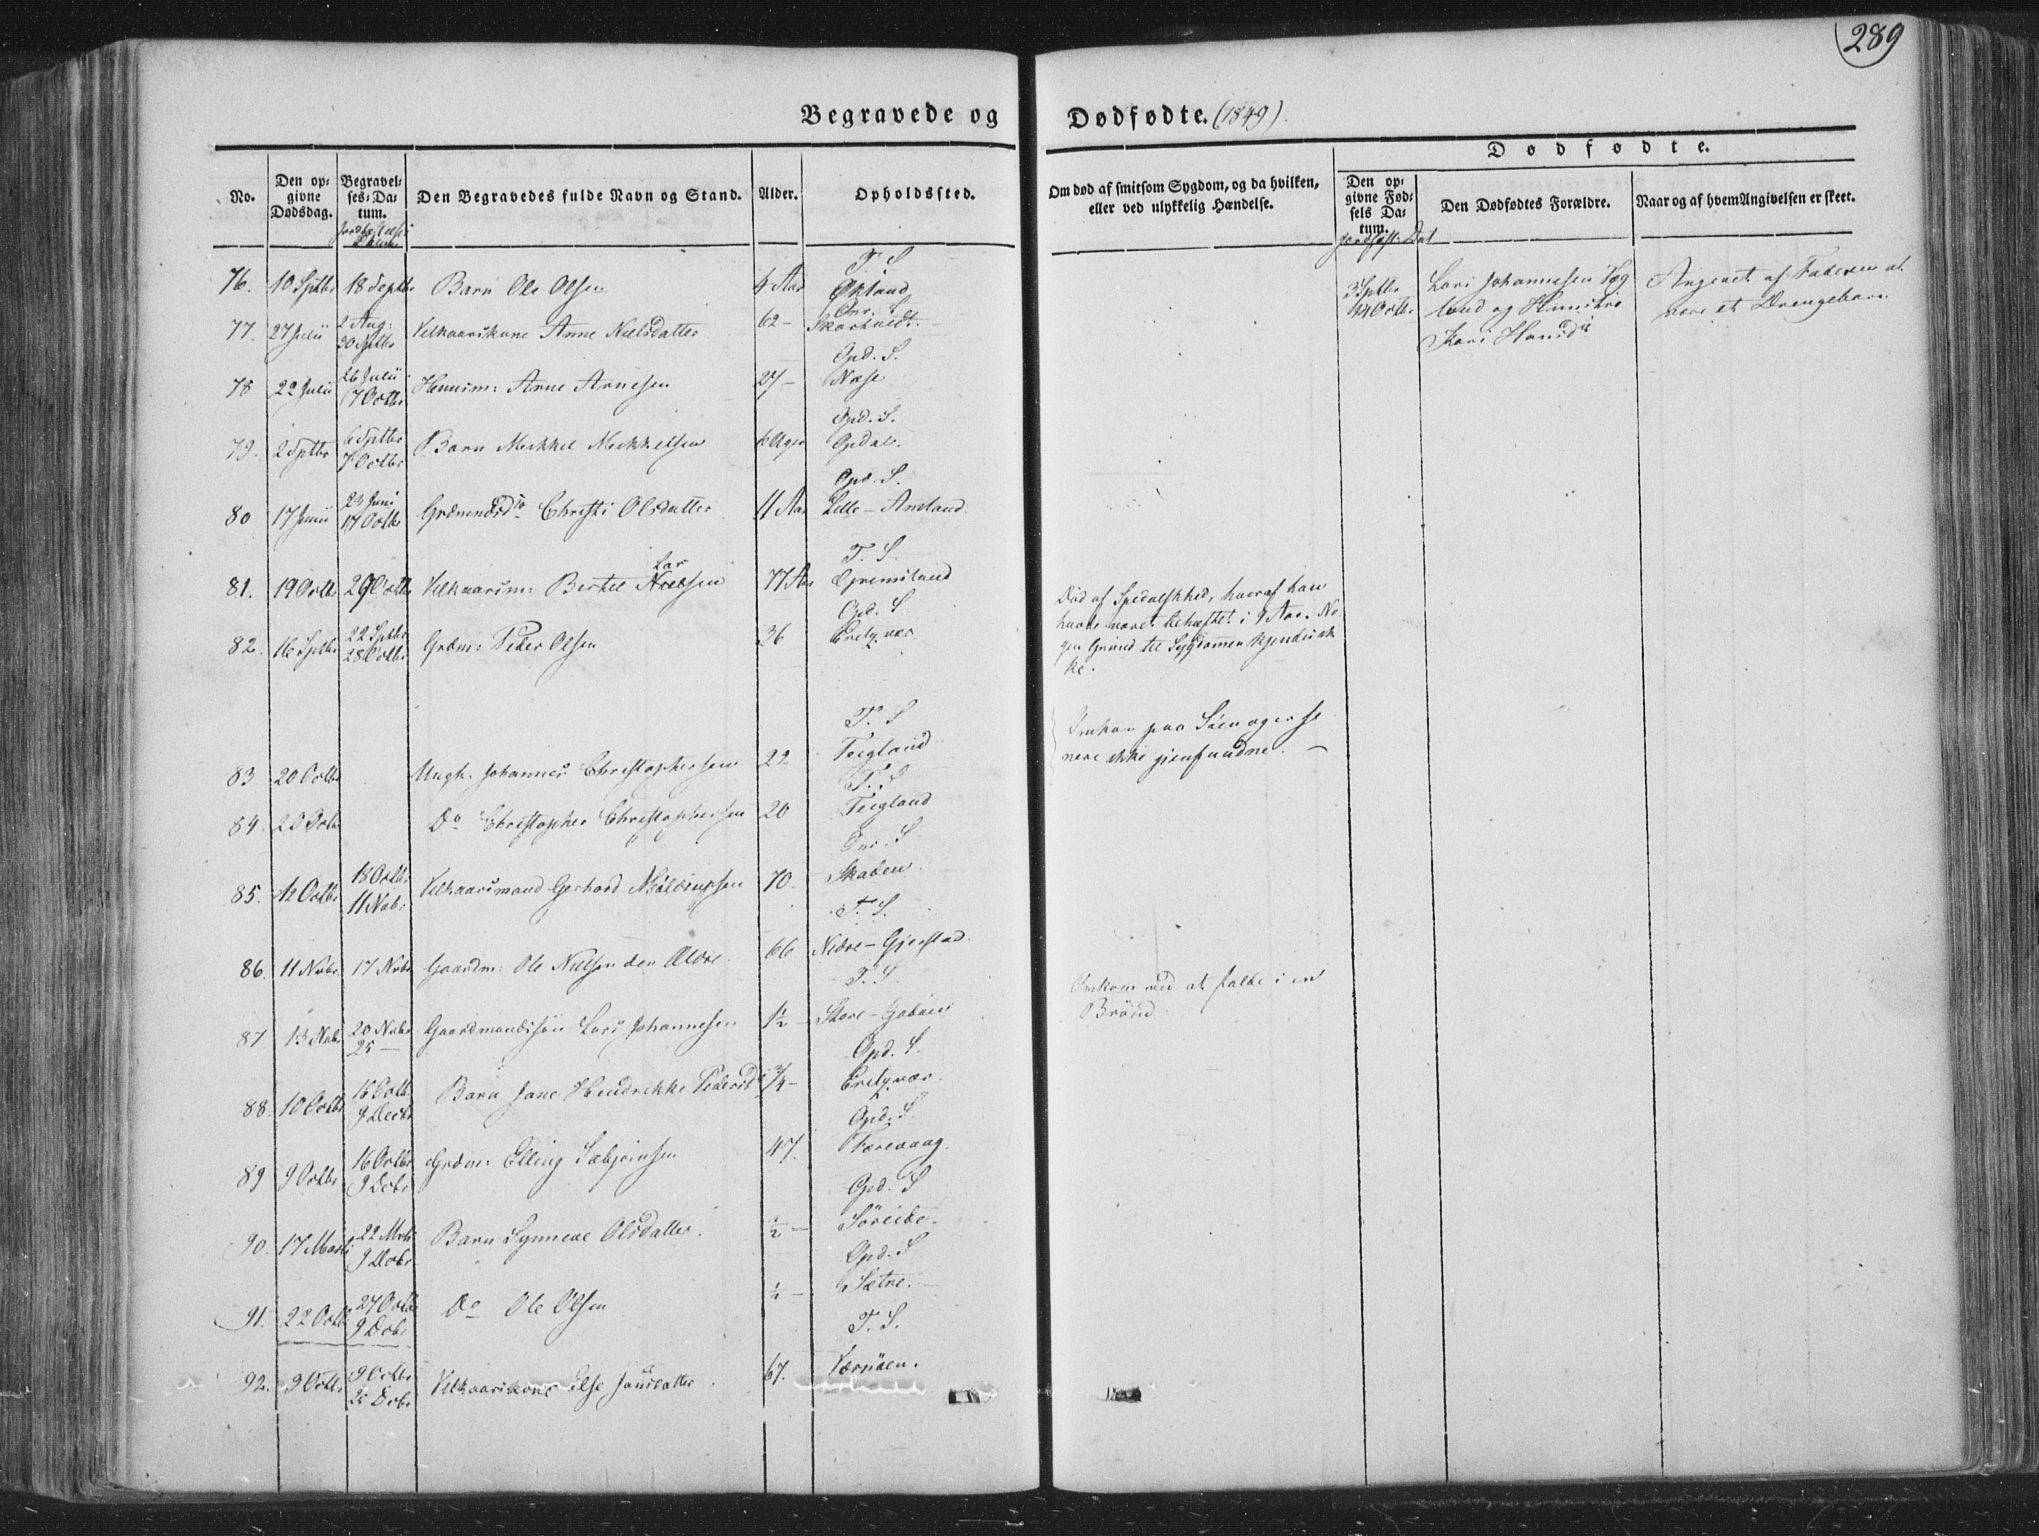 289
Begravede og Dødfødte. (1849).
No.
Den opgivne Dødsdag.
Begravelses-Datum.
Den Begravedes fulde Navn og Stand.
Alder.
Opholdssted.
Om død af smitsom Sygdom, og da hvilken, eller ved ulykkelig Hændelse.
Dødfødte.
Den opgivne Fødsels Datum.
Den Dødfødtes Forældre.
Naar og af hvem Angivelsen er skeet.
T. S
76. 10 Septbr 18 Septbr Barn Ole Olsen 4 Aar Økland
77. 27 Julii 2 Aug: Velkaarskone Anne Nielsdatter 62 - Skartvedt.
20 Septbr
Opd. S.
78 22 Julii 26 Julii Arne Arnesen 27 - Næse
7 Octbr
Opd. S.
79. 2 Septbr 6 Septbr Barn Mekkel Mekkelsen 6 Uger Opdal.
7 Octbr
Opd. S.
80 17 Junii 24 Juni Christi Olsdatter 11 Aar Lille - Amland.
17 Octbr
T. S.
Lar
81. 19 Octbr 29 Octbr Velkaarsm: Bertel Nielsen 77 Aar Grimsland
Opd. S
82. 16 Septbr 22 Septbr Grdm: Peder Olsen 36
28 Octbr
T. S
83 20 Octbr Ungk. Johannes Christophersen 22 Teigland
T. S
84. 20 Octbr Do Christopher Christophersen 20 Teigland
85. 12 Octbr 18 Octbr Velkaarsmand Gerhard 70. Skaden
11 Nobr
T. S.
86. 11 Nobr. 17 Nobr Gaardm: Ole Nielsen den Ældre. 66 Nedre - Gjerstad.
T. S.
87 13 Nobr 20 Nobr Gaardmandssøn Lars Johannesen 1½ - Store -
25 —
Opd. S.
88. 10 Octbr 16 Octb. Barn Jane Hendrekke Pedersd ¾ -
9 Decbr
Opd. S.
89 9 Octbr 16 Octbr Grdm: Elling Sæbjørnsen 47. Færevaag
9 Dcbr
Opd. S
90. 17 Marts 22 Mrts Barn Synneve Olsdatter. ½ - Søreide.
9 Dcbr
Opd. S
91. 22 Octb 27 Octbr Do Ole Olsen ½ - Sætre.
9 Dcbr
T. S.
92. 9 Octbr 9 Octbr Velkaarskone Ilse Jansdatter 67. Værøen.
25 Dcbr
Død af Spedalskhed, hvoraf han
havde været behæftet i 9 Aar. No
gen Grund til Sygdommen kjendes ik
ke.
Omkom paa Søen og er se
nere ikke gjenfundne. —
Omkom ved at falde i en
Brønd.
3 Septbr Lars Johannesen Angivet af Faderen at
14 Octbr land og Hustru være et Drengebarn
Kari Hansd